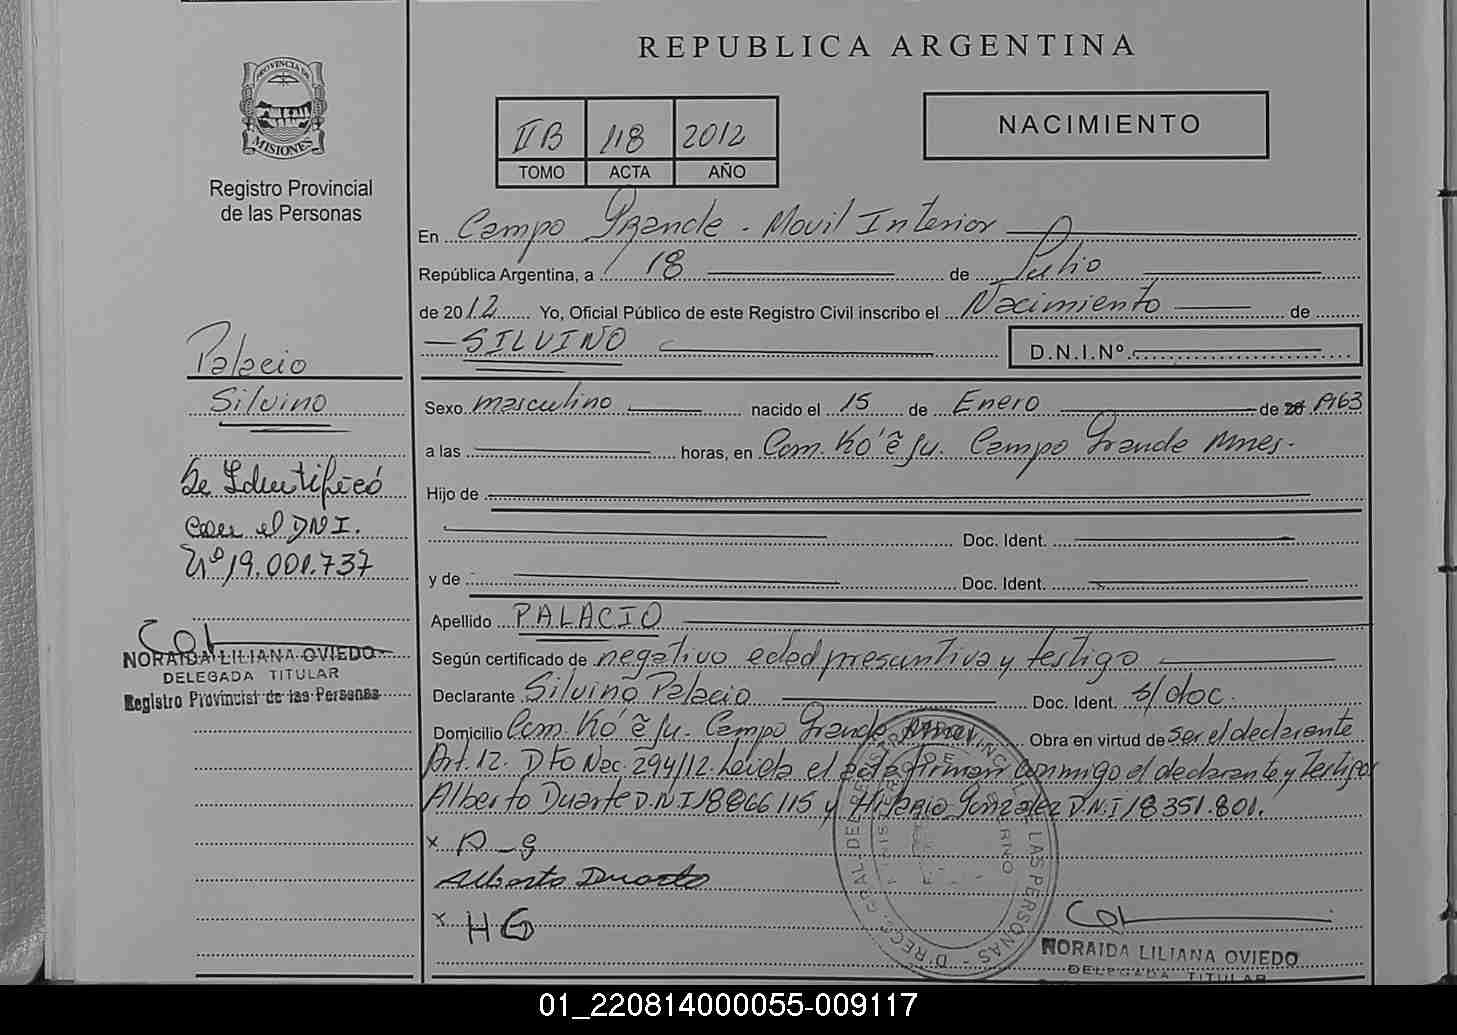 REPUBLICA ARGENTINA
PROVINCIA DE
MISIONES
Registro Provincial
de las Personas
IIB 118 2012
TOMO ACTA AÑO
NACIMIENTO
En Campo Grande - Movil Interior
República Argentina, a 18 de Julio
de 2012 Yo, Oficial Público de este Registro Civil inscribo el Nacimiento de
SILVINO D.N.I.Nº
Palacio
Silvino
Se Identificó
con el DNI.
Nº 19.001.737
NORAIDA LILIANA OVIEDO
DELEGADA TITULAR
Registro Provincial de las Personas
Sexo masculino nacido el 15 de Enero de 20 1963
a las horas, en Com. Ko'ẽ Ju. Campo Grande Mnes.
Hijo de
Doc. Ident.
y de Doc. Ident.
Apellido PALACIO
Según certificado de negativo edad presuntiva y testigo
Declarante Silvino Palacio Doc. Ident. s/doc.
Domicilio Com. Ko'ẽ Ju. Campo Grande Mnes Obra en virtud de ser el declarante
Art. 12. Dto Nac. 294/12. Leida el acta firman conmigo el declarante y Testigos
Alberto Duarte D.N.I 18866115 y Hilario Gonzalez D.N.I 18351.801.
x
Alberto Duarte
x H G
NORAIDA LILIANA OVIEDO
DELEGADA TITULAR
01_220814000055-009117